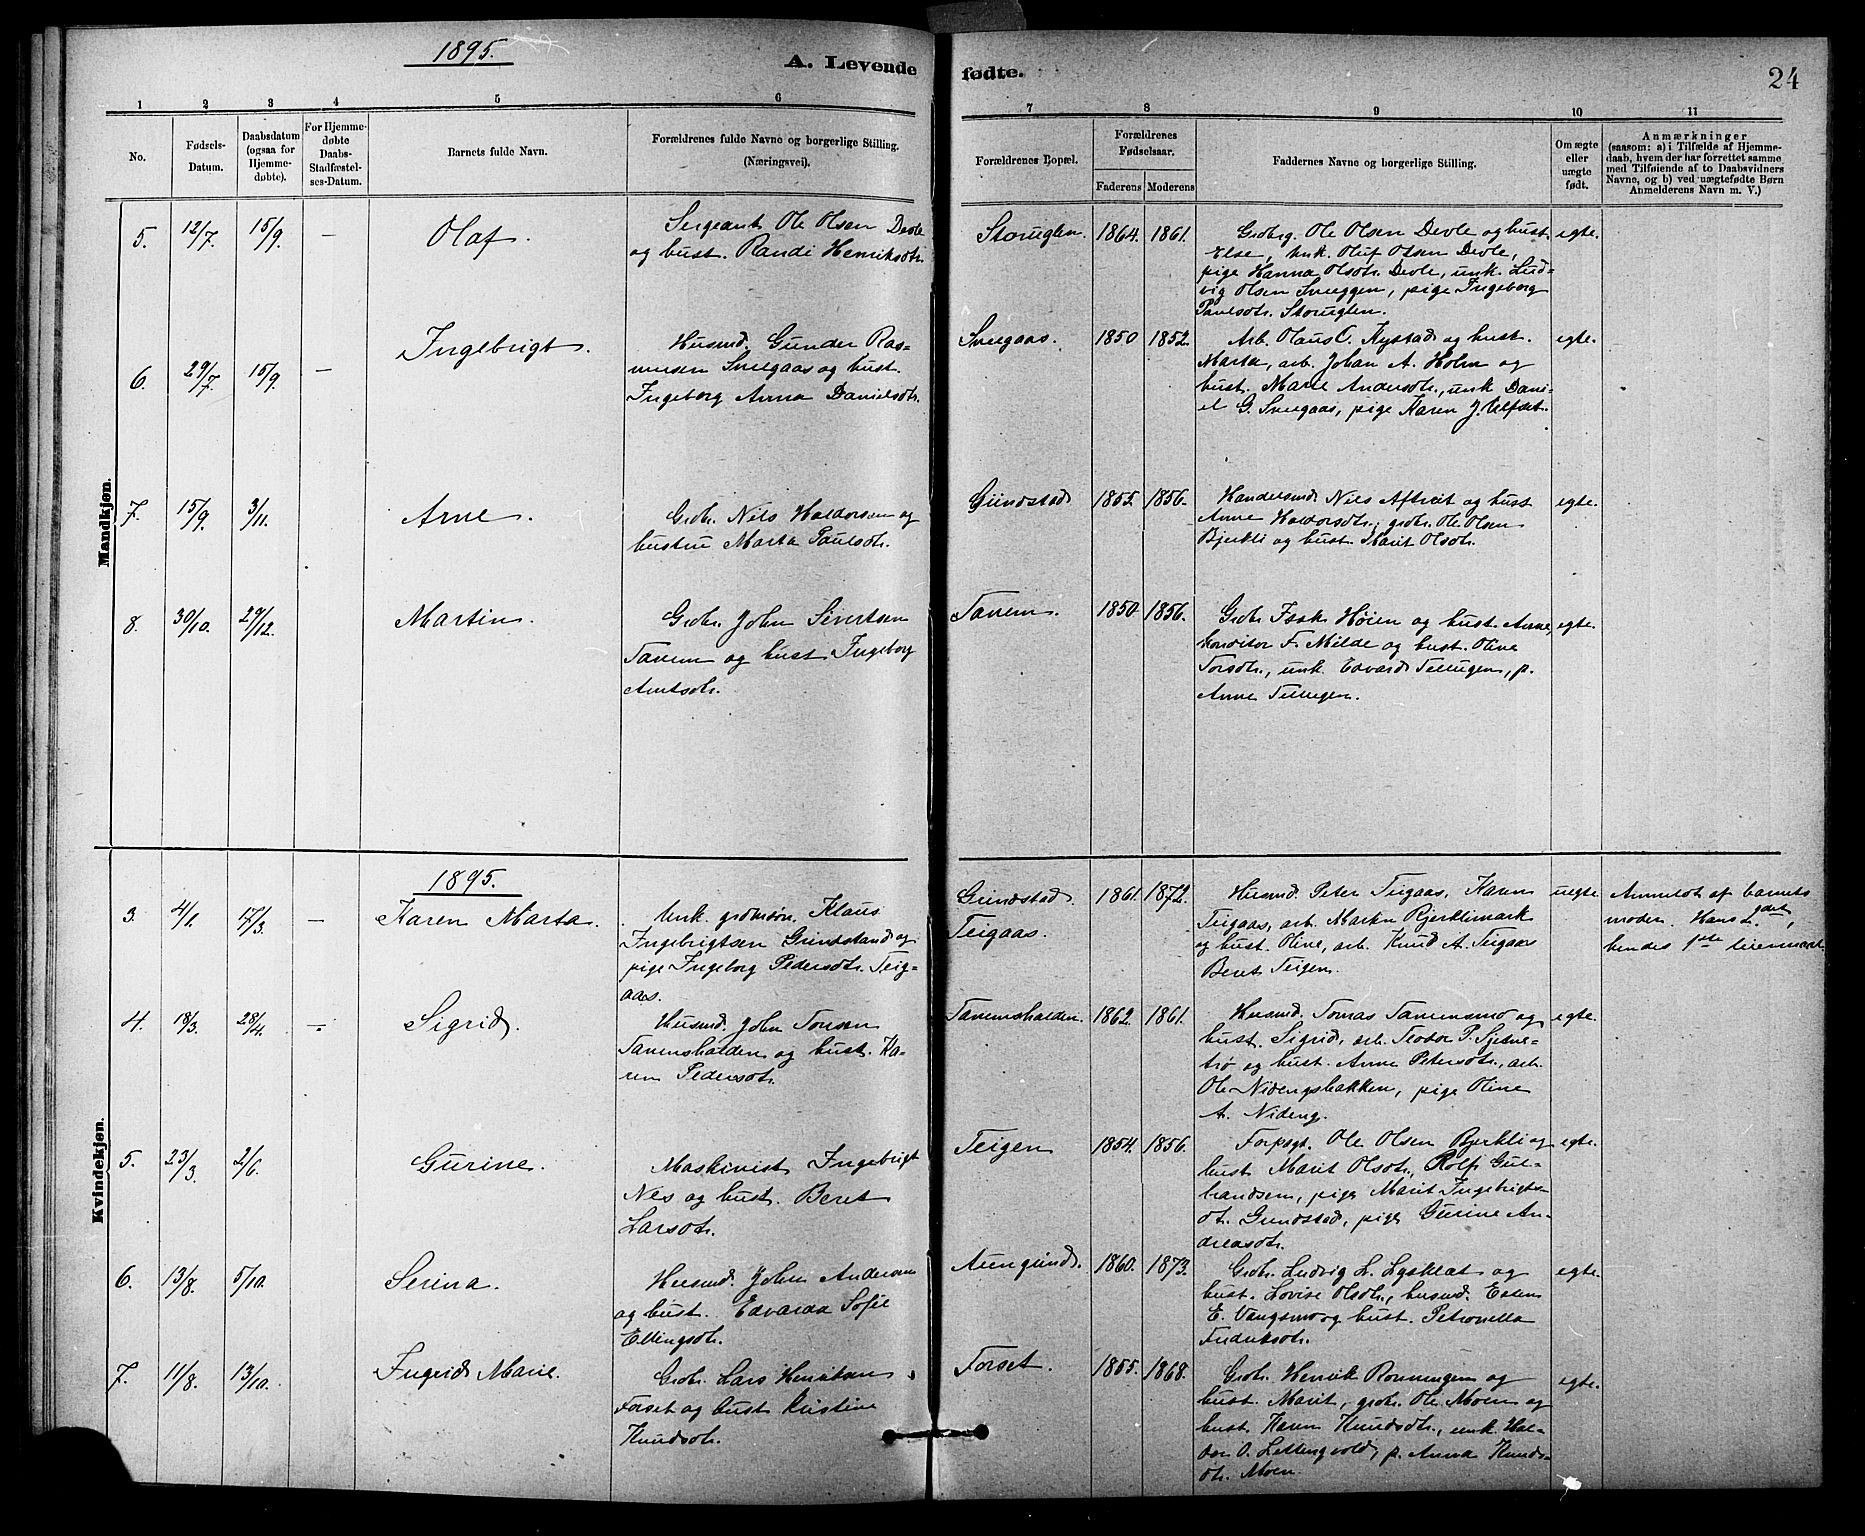 1895.
A. Levende
fødte.
24
1 2 3 4 5 6
7 8 9 10 11
No.
Fødsels-
Datum.
Daabsdatum
(ogsaa for
Hjemme-
døbte).
For Hjemme-
døbte
Daabs-
Stadfæstel-
ses-Datum.
Barnets fulde Navn.
Forældrenes fulde Navne og borgerlige Stilling.
(Næringsvei).
Forældrenes Bopæl.
Forældrenes
Fødselsaar.
Faderens Moderens
Faddernes Navne og borgerlige Stilling.
Om ægte
eller
uægte
født.
Anmærkninger
(saasom: a) i Tilfælde af Hjemme-
daab, hvem der har forrettet samme
med Tilføiende af to Daabsvidners
Navne, og b) ved uægtefødte Børn
Anmelderens Navn m. V.)
Mandkjøn.
5. 12/7. 15/9. — Olaf.
Sergeant Ole Olsen Devle
og hust. Randi Henriksdtr.
Storuglen. 1864. 1861.
Grdbrg. Ole Olsen Devle og hust.
Else, unk. Oluf Olsen Devle,
pige Hanna Olsdtr. Devle, unk. Lud-
vig Olsen Sveggen, pige Ingeborg
Paulsdtr. Storuglen.
egte.
6. 29/7. 15/9. — Ingebrigt.
Husmd. Gunder Ras-
mussen Sveegaas og hust.
Ingeborg Anna Danielsdtr.
Sveegaas. 1850 1852.
Arb. Olaus O. Rystad og hust.
Marta, arb. Johan A. Holm og
hust. Marie Andersdtr., unk Dani-
el G. Sveegaas, pige Karen J. Ulfset.
egte.
7. 15/9. 3/11. Arne.
Grdbr. Nils Haldorsen og
hustru Marta Paulsdtr.
Grindstad 1855. 1856.
Handelsmd. Nils Aftreit og hust
Anne Haldorsdtr., grdbr. Ole Olsen
Bjerkli og hust. Marit Olsdtr.
egte.
8. 30/10. 29/12. Martin.
Grdbr. John Sivertsen
Tanem og hust Ingeborg
Arntsdtr.
Tanem. 1850 1856.
Grdbr Isak Høien og hust. Anne,
konditor F. Milde og hust. Oline
Torsdtr., unk. Edvard Tellugen, p.
Anne Tellugen.
egte.
Kvindekjøn.
1895.
3. 4/1. 17/3. — Karen Marta.
Unk. grdmsøn. Klaus
Ingebrigtsen Grindstand og
pige Ingeborg Pedersdtr. Teig-
aas.
Grindstad
Teigaas.
1861. 1872.
Husmd. Peter Teigaas, Karen
Teigaas, arb. Martin Bjerklimark
og hust. Oline, arb. Knud A. Teigaas
Beret Teigen.
uegte
Anmeldt af barnets
moder. Hans 2det,
hendes 1ste leiermaal.
4. 18/3. 28/4. — Sigrid.
Husmd. John Tonsen
Tanemshalden og hust. Ka-
ren Pedersdtr.
Tanemshalden. 1862. 1861.
Husmd. Tomas Tanemsmo og
hust. Sigrid, arb. Teodor P. Sjetne-
trø og hust. Anne Petersdtr., arb.
Ole Nidengsbakken, pige Oline
A. Nideng.
egte.
5. 23/3. 2/6. Gurine.
Maskinist Ingebrigt
Nes og hust. Beret
Larsdtr.
Teigen 1854. 1856.
Forpagt. Ole Olsen Bjerkli og
hust Marit Olsdtr., Rolf Gul-
brandsen, pige Marit Ingebrigts-
dt. Grindstad, pige Gurine An-
dreasdtr.
egte.
6. 13/8. 5/10. Serina.
Husmd. John Andersen
og hust. Edvarda Sofie
Ellingsdtr.
Aungrind. 1860. 1873.
Grdbr. Ludvig L. Lysklæt og
hust. Lovise Olsdtr., husmd. Esten
E. Vangsmo og hust. Petronella
Fredriksdtr.
egte.
7. 11/8. 13/10. Ingrid Marie.
Grdbr. Lars Henriksen
Forset og hust Kristine
Knudsdtr.
Forset. 1855. 1868.
Grdbr. Henrik Rønningen og
hust. Marit, grdbr. Ole Moen og
hust Karen Knudsdtr., unk. Hal-
dor O. Lettingvold, p. Anna Knuds-
dtr. Moen.
egte.